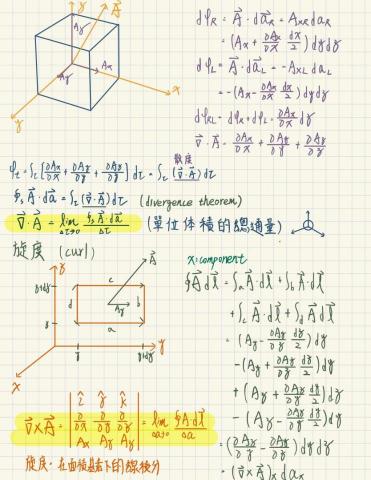 z
A
Az
Ax
Ay
x
y
dφR = A⃗ · da⃗R = AxR daR
= (Ax + ∂Ax/∂x dx/2) dydz
dφL = A⃗ · da⃗L = -AxL daL
= -(Ax - ∂Ax/∂x dx/2) dydz
dφRL = dφR + dφL = ∂Ax/∂x dz
∇⃗ · A⃗ = ∂Ax/∂x + ∂Ay/∂y + ∂Az/∂z
散度
φt = ∫τ [∂Ax/∂x + ∂Ay/∂y + ∂Az/∂z] dτ = ∫τ (∇⃗ · A⃗) dτ
∮s A⃗ · da⃗ = ∫τ (∇⃗ · A⃗) dτ (divergence theorem)
∇⃗ · A⃗ = lim Δτ→0 ∮s A⃗ · da⃗ / Δτ (單位体積的總通量)
旋度 (curl)
z
A⃗
z+dz
c
d
b
Ay
z
a
y
y+dy
y
x
x: component
∮A⃗ dl⃗ = ∫a A⃗ · dl⃗ + ∫b A⃗ · dl⃗
+ ∫c A⃗ · dl⃗ + ∫d A⃗ dl⃗
= (Ay - ∂Ay/∂z dz/2) dy
-(Ay + ∂Ay/∂z dz/2) dy
+ (Az + ∂Az/∂y dy/2) dz
- (Az - ∂Az/∂y dy/2) dz
= (∂Az/∂y - ∂Ay/∂z) dydz
= (∇⃗ × A⃗)x dax
∇⃗ × A⃗ = | î ĵ k̂ | = lim Δa→0 ∮A⃗ · dl⃗ / Δa
∂/∂x ∂/∂y ∂/∂z
Ax Ay Az
旋度：在面積基下的線積分